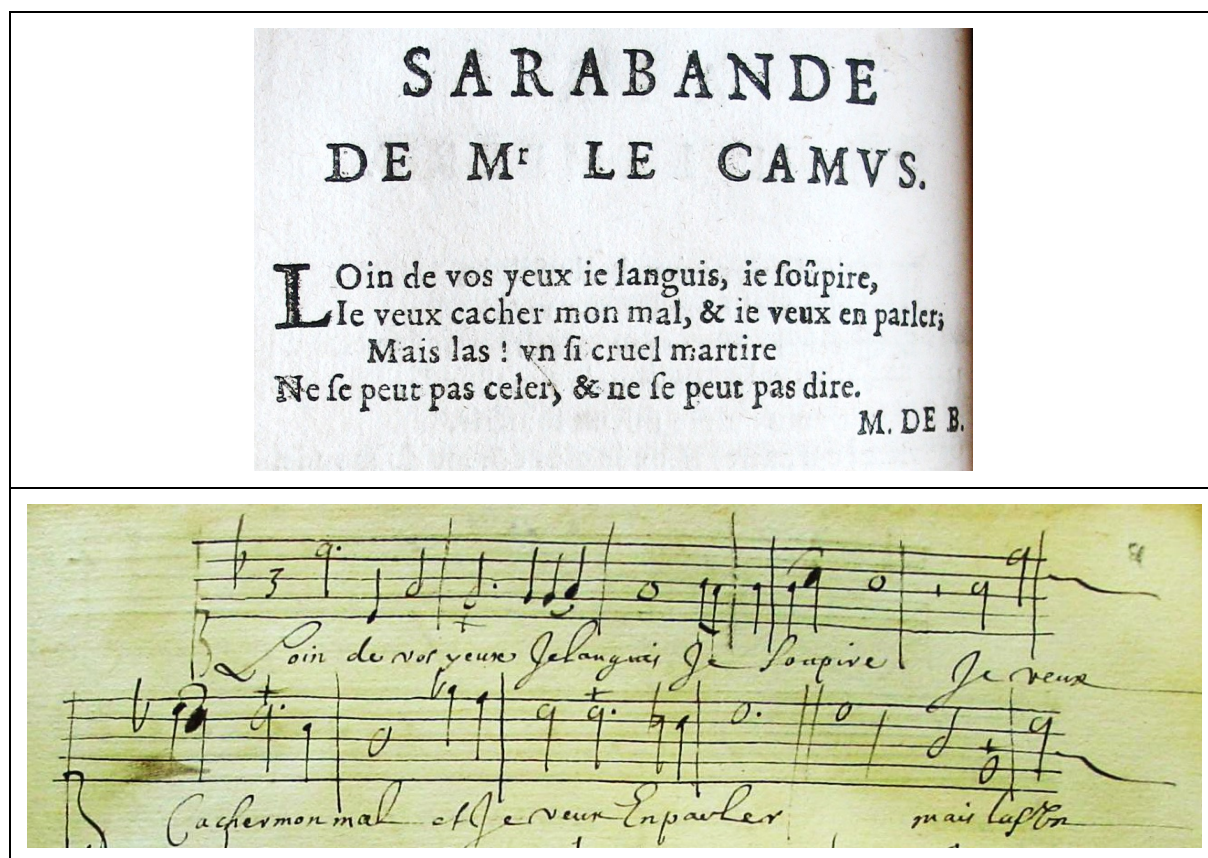 SARABANDE
DE Mr LE CAMVS.
LOin de vos yeux ie languis, ie ſoûpire,
Ie veux cacher mon mal, & ie veux en parler;
Mais las ! vn ſi cruel martire
Ne ſe peut pas celer, & ne ſe peut pas dire.
M. DE B.
3
Loin de vos yeux Je languis Je soupire Je veux
Cacher mon mal et Je veux En parler mais las Vn